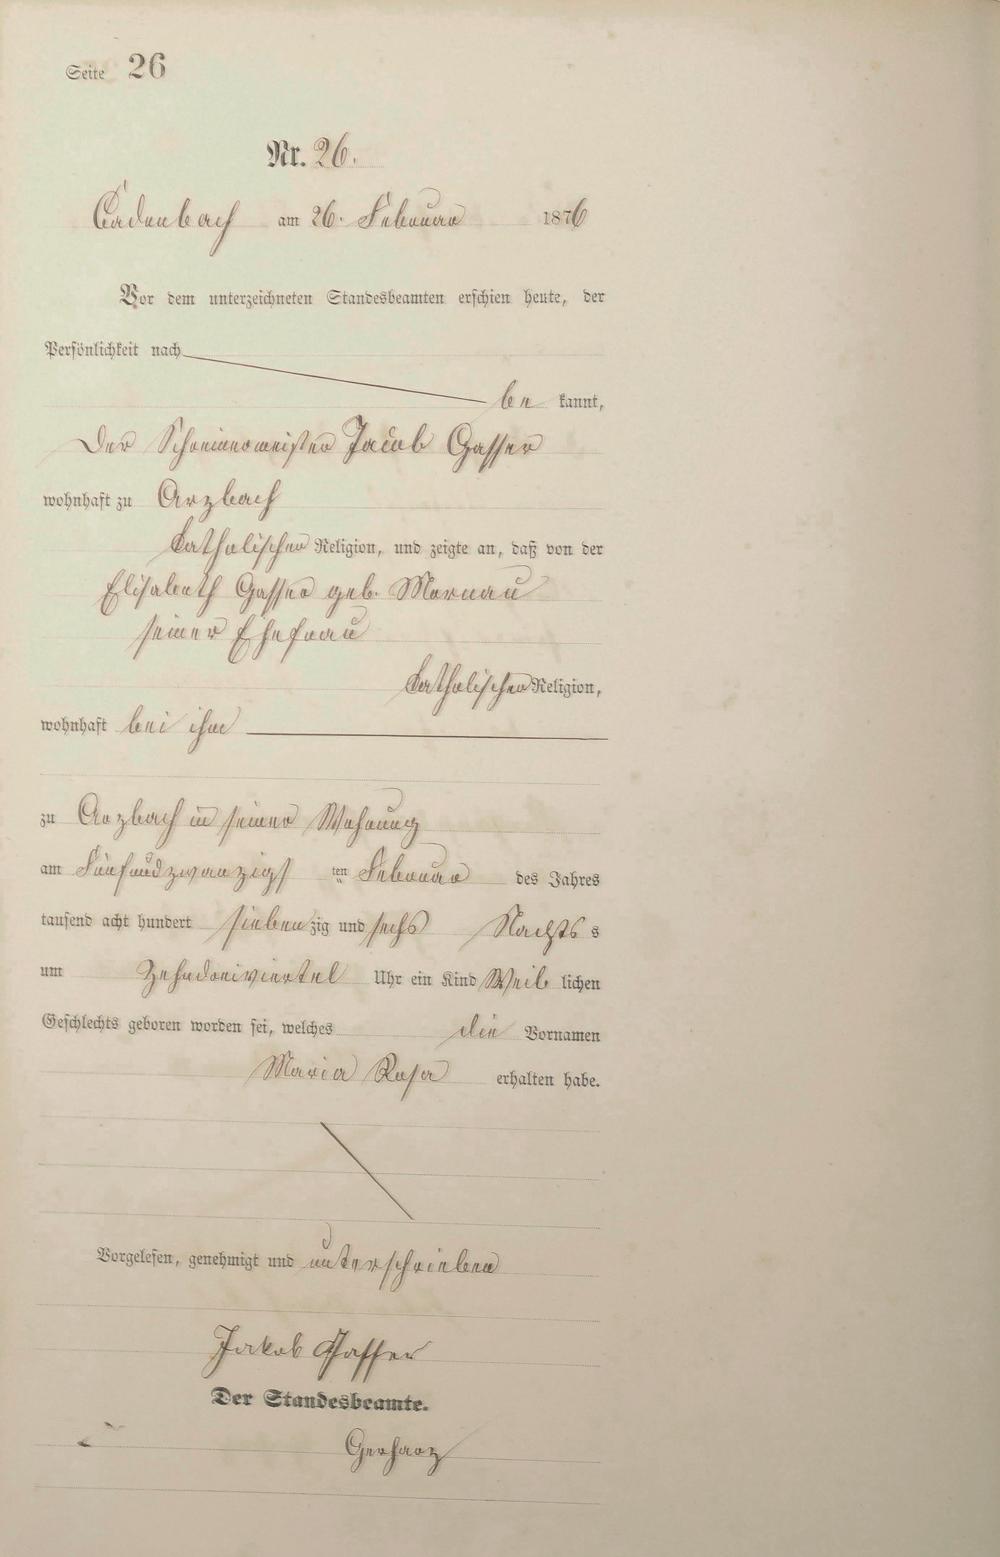 Seite 26
Nr. 26.
Cadenbach am 26. Februar 1876
Vor dem unterzeichneten Standesbeamten erschien heute, der
Persönlichkeit nach
be kannt,
Der Schreinermeister Jacob Gasser
wohnhaft zu Arzbach
katholischer Religion, und zeigte an, daß von der
Elisabeth Gasser geb. Mornau
seiner Ehefrau
katholischer Religion,
wohnhaft bei ihm
zu Arzbach in seiner Wohnung
am Fünfundzwanzigs ten Februar des Jahres
tausend acht hundert sieben zig und sechs Nachts s
um Zehndreiviertel Uhr ein Kind Weib lichen
Geschlechts geboren worden sei, welches die Vornamen
Maria Rosa erhalten habe.
Vorgelesen, genehmigt und unterschrieben
Jakob Gasser
Der Standesbeamte.
Gerharz